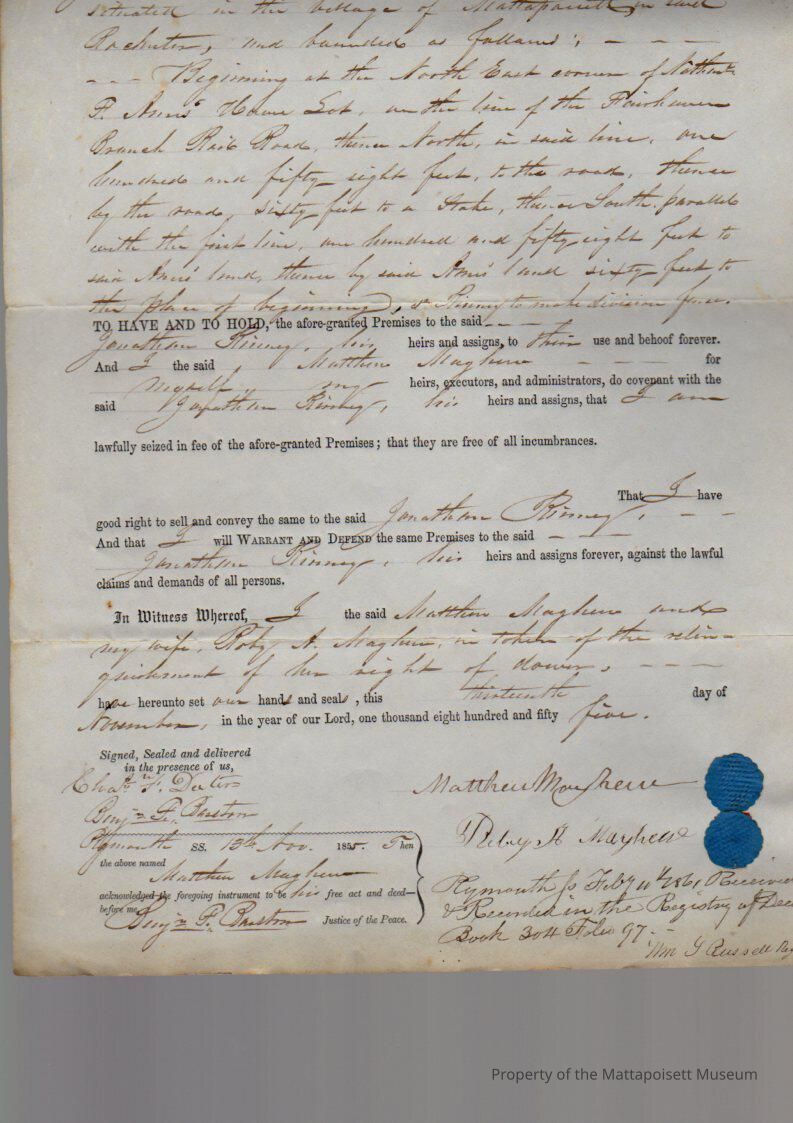 situated in the village of Mattapoisett, in said
Rochester, and bounded as follows; - - -
- - - Beginning at the North East corner of
F. Ames' House Lot, on the line of the Fairhaven
Branch Rail Road, thence North, in said line, one
hundred and fifty eight feet, to the road, thence
by the road, sixty feet to a Stake, thence South, parallel
with the first line, one hundred and fifty eight feet to
said Ames' land, thence by said Ames' land sixty feet to
the place of beginning, & Kinney to make division fence.
TO HAVE AND TO HOLD, the afore-granted Premises to the said - - -
Jonathan Kinney, his heirs and assigns, to their use and behoof forever.
And I the said, Matthew Mayhew - - - for
myself, my heirs, executors, and administrators, do covenant with the
said Jonathan Kinney, his heirs and assigns, that I am
lawfully seized in fee of the afore-granted Premises; that they are free of all incumbrances.
That I have
good right to sell and convey the same to the said Jonathan Kinney, - -
And that I will WARRANT AND DEFEND the same Premises to the said - - -
Jonathan Kinney, his heirs and assigns forever, against the lawful
claims and demands of all persons.
In Witness Whereof, I the said Matthew Mayhew and
my wife, Ruby A. Mayhew, in token of the relin-
quishment of her right of dower, - - -
have hereunto set our hands and seals, this thirteenth day of
November, in the year of our Lord, one thousand eight hundred and fifty five.
Signed, Sealed and delivered
in the presence of us,
Chas. F. Dexter
Benjn F. Barstow
Matthew Mayhew
Ruby A Mayhew
Plymouth SS. 13th Nov. 1855. Then
the above named
Matthew Mayhew
acknowledged the foregoing instrument to be his free act and deed—
before me,
Benjn F. Barstow Justice of the Peace.
Plymouth ss Feby 11th 1861 Received
& Recorded in the Registry of Dee
Book 304 Folio 97.-
Wm S Russell Reg
Property of the Mattapoisett Museum